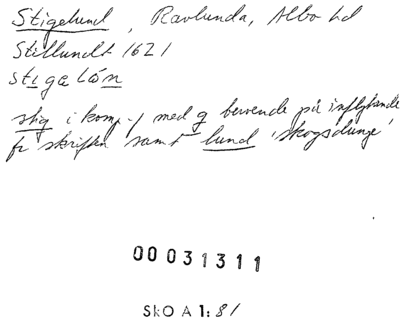 Stigelund, Ravlunda, Albo hd
Stillundt 1621
stigalón
stig i komp. med g beroende på inflytande
fr skriften samt lund 'skogsdunge'
00031311
SkO A 1:81